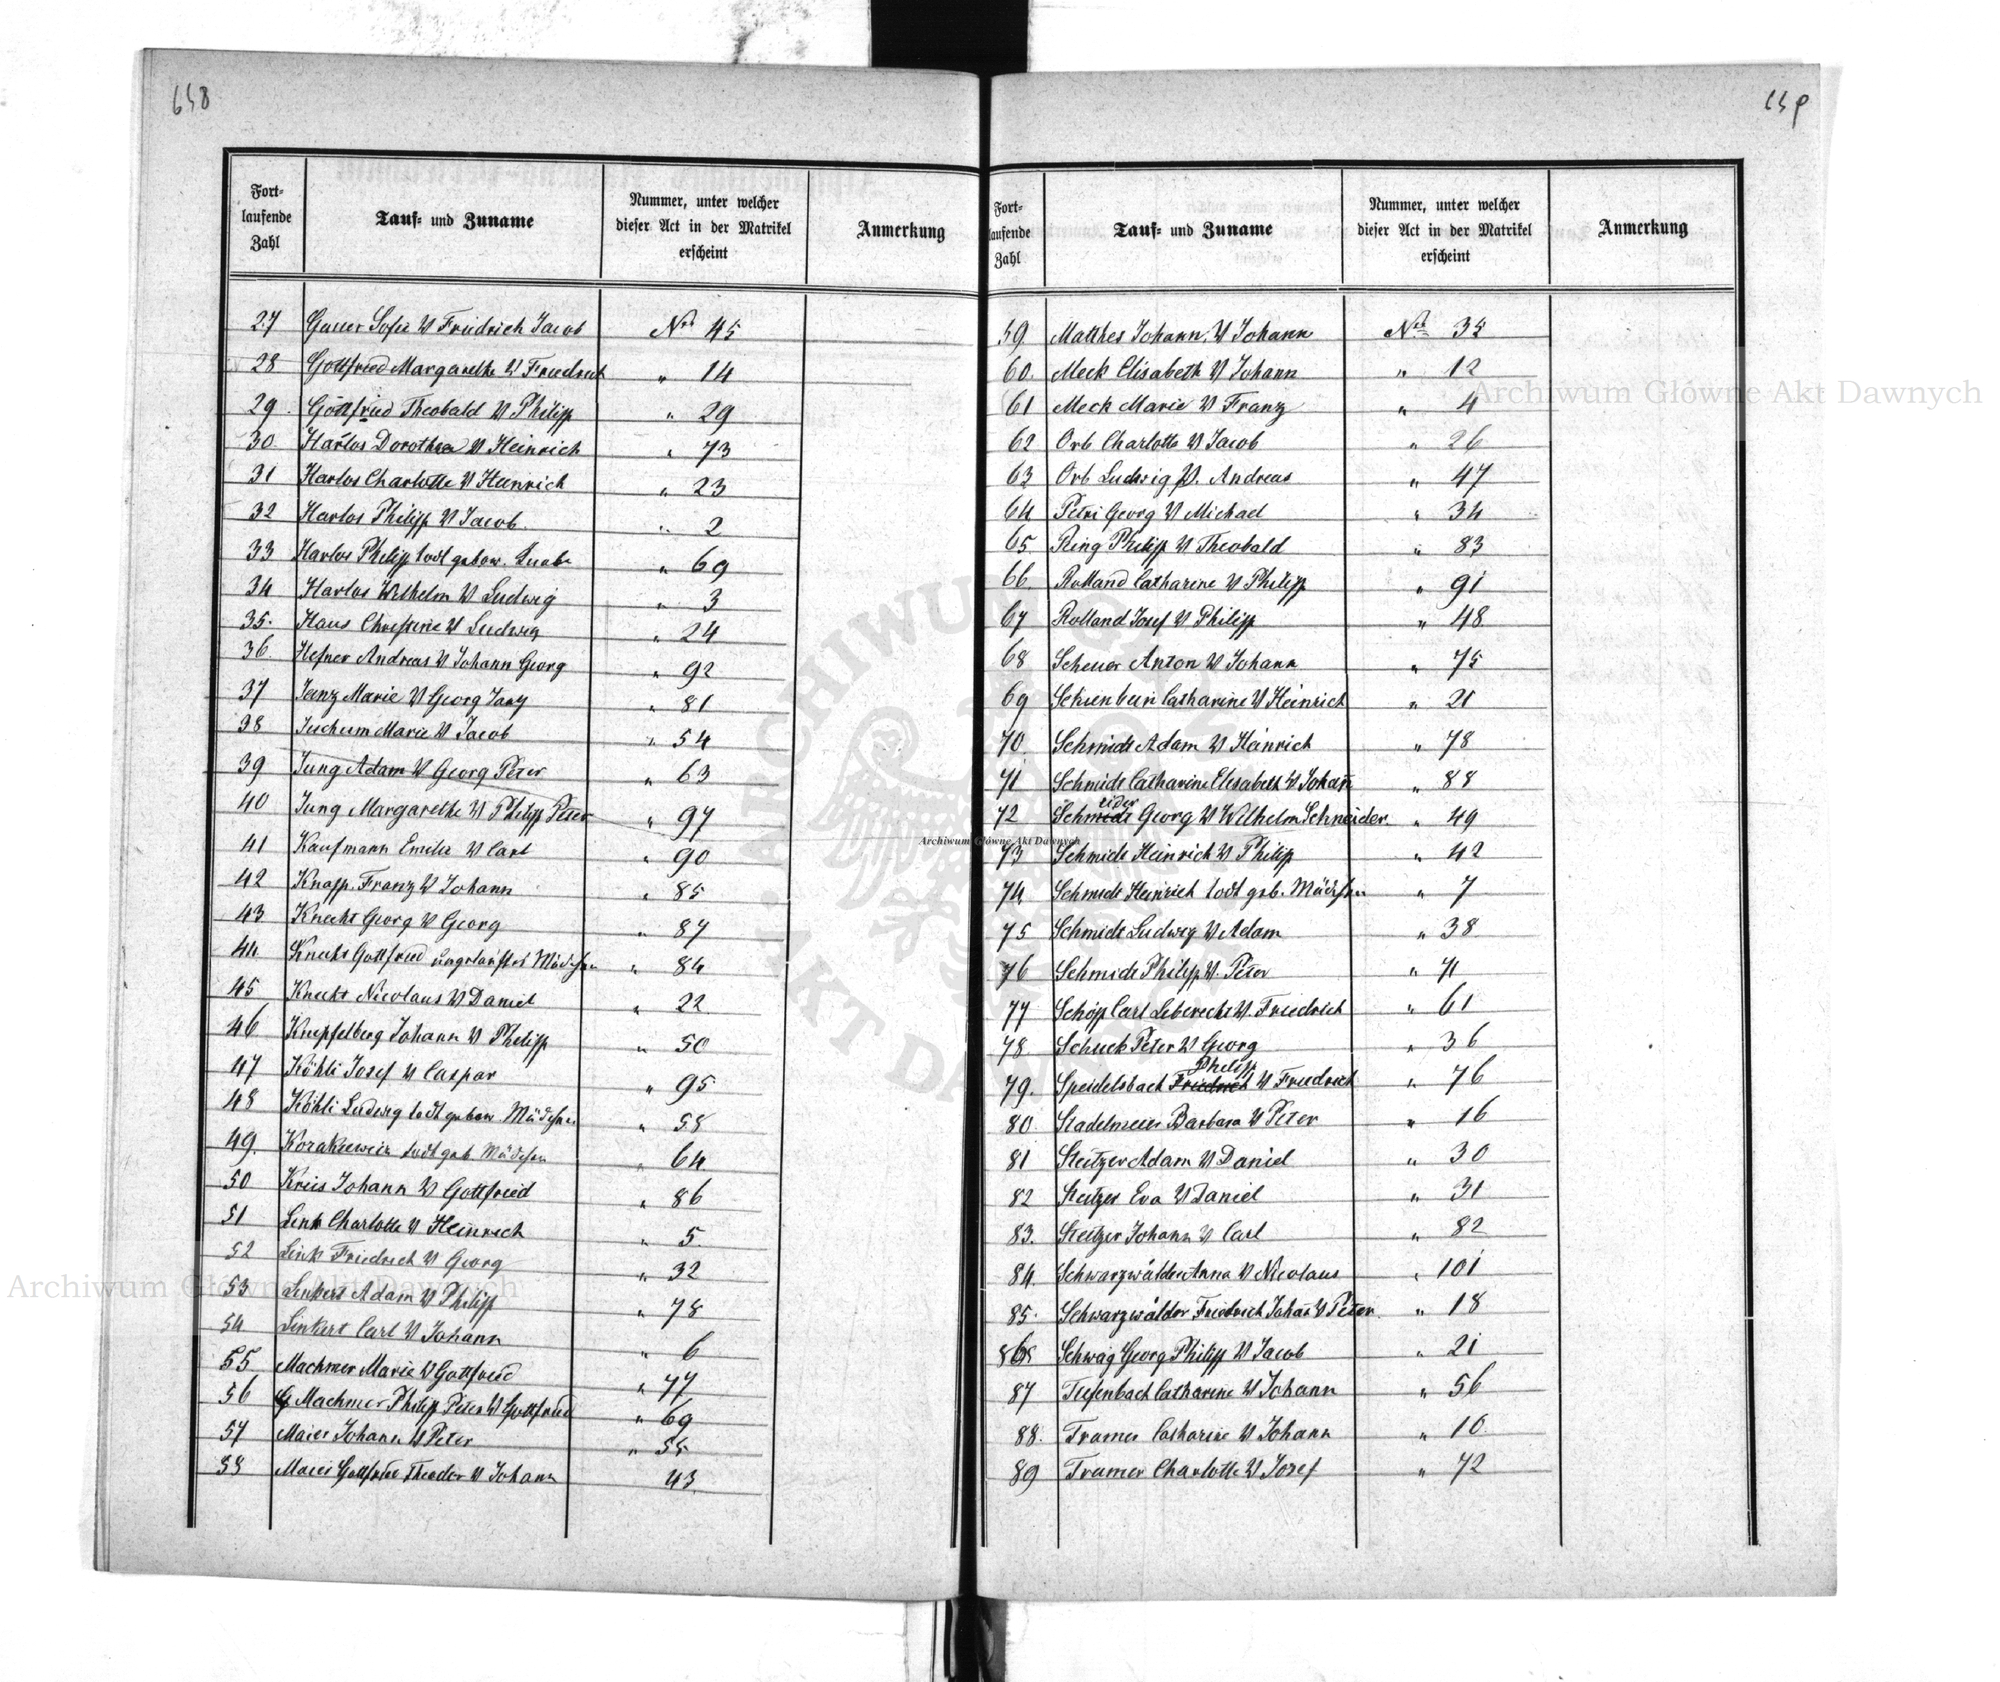 658
Fort-
laufende
Zahl
Tauf- und Zuname
Nummer, unter welcher
dieser Act in der Matrikel
erscheint
Anmerkung
27 Gauer Sofie V Friedrich Jacob Nro 45
28 Gottfried Margarethe V Friedrich " 14
29. Gottfried Theobald V Philipp " 29
30 Harlos Dorothea V Heinrich " 73
31 Harlos Charlotte V Heinrich " 23
32 Harlos Philipp V Jacob. " 2
33 Harlos Philipp todt gebor. Knabe " 69
34 Harlos Wilhelm V Ludwig " 3
35. Haus Christine V Ludwig " 24
36 Hefner Andreas V Johann Georg " 92
37 Janz Marie V Georg Janz " 81
38 Juchum Marie V Jacob " 54
39 Jung Adam V Georg Peter " 63
40 Jung Margarethe V Philipp Peter " 97
41 Kaufmann Emilie V Carl " 90
42 Knapp Franz V Johann " 85
43 Knecht Georg V Georg " 87
44 Knecht Gottfried ungetauftes Mädchen " 84
45 Knecht Nicolaus V Daniel " 22
46 Knipfelberg Johann V Philipp " 50
47 Köhli Josef V Caspar " 95
48 Köhli Ludwig todt gebor. Mädchen " 58
49. Korakiewicz todt geb. Mädchen " 64
50 Kreis Johann V Gottfried " 86
51 Link Charlotte V Heinrich " 5.
52 Link Friedrich V Georg " 32
53 Linkert Adam V Philipp " 78
54 Linkert Carl V Johann " 6
55 Machmer Marie V Gottfried " 77
56 Machmer Philipp Peter V Gottfried " 69
57 Maier Johann V Peter " 55
58 Maier Gottfried Theodor V Johann 43.
659
Fort-
laufende
Zahl
Tauf- und Zuname
Nummer, unter welcher
dieser Act in der Matrikel
erscheint
Anmerkung
59 Matthes Johann, V Johann Nro 35
60. Meck Elisabeth V Johann " 12
61 Meck Marie V Franz " 4
62 Orb Charlotte V Jacob " 26
63 Orb Ludwig V. Andreas " 47
64 Petri Georg V Michael " 34
65 Ring Philipp V Theobald " 83
66. Rolland Catharine V Philipp " 91
67 Rolland Josef V Philipp " 48
68 Scheuer Anton V Johann " 75
69 Schienbein Catharine V Heinrich " 21
70. Schmidt Adam V Heinrich " 78
71 Schmidt Catharine Elisabeth V Johann " 88
eider
72 Schmidt Georg V Wilhelm Schneider " 49
73 Schmidt Heinrich V Philip " 42
74. Schmidt Heinrich todt geb. Mädchen " 7
75 Schmidt Ludwig V Adam " 38
76 Schmidt Philipp V. Peter " 71
77 Schöpp Carl Leberecht V. Friedrich " 61
78. Schuck Peter V Georg " 36
Philipp
79. Speidelsbach Friedrich V Friedrich " 76
80. Stadelmeier Barbara V Peter " 16
81 Steitzer Adam V Daniel " 30
82 Steitzer Eva V Daniel " 31
83. Steitzer Johann V Carl " 82
84. Schwarzwälder Anna V Nicolaus " 101
85. Schwarzwälder Friedrich Johann V Peter " 18
86 Schwag Georg Philipp V Jacob " 21
87 Tiefenbach Catharine V Johann " 56
88. Tramer Catharine V Johann " 10
89 Tramer Charlotte V Josef " 72
Archiwum Główne Akt Dawnych
Archiwum Główne Akt Dawnych
Archiwum Główne Akt Dawnych